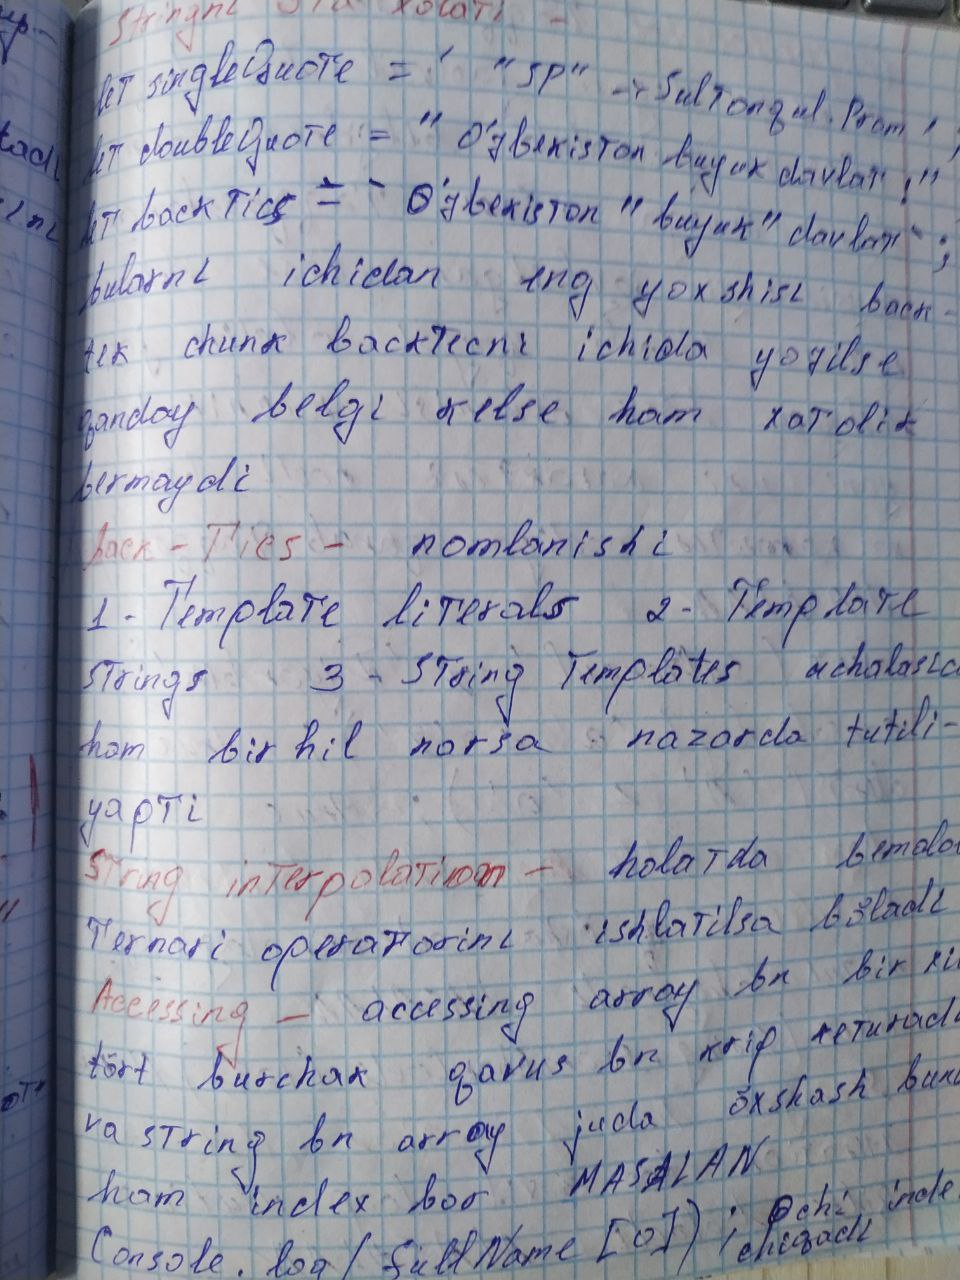 Stringni 3ta xolati -
let singleQuote = ' "SP" -> Sultonqul.Prom' ;
let doubleQuote = " O'zbekiston buyuk davlat ;"
let backTics = ` O'zbekiston "buyuk" davlat ` ;
bularni ichidan eng yoxshisi back-
tek chunk backtecni ichida yozilse
qanday belgi kelse ham xatolik
bermaydi
back-Tics - nomlanishi
1 - Template literals 2 - Template
strings 3 - String Templates uchalasida
ham bir hil norsa nazarda tutili-
yapti
String interpolation - holatda bemalol
Ternari operatorini ishlatilsa bõladi
Accessing - accessing array bn bir xil
tõrt burchak qavus bn krip keturadi
va string bn array juda õxshash bun
ham index bor MASALAN
Console.log(fullName[0]); 0chi inde
chiqadi